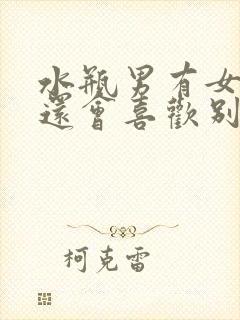 水瓶男有女
還會喜歡别
柯克雷